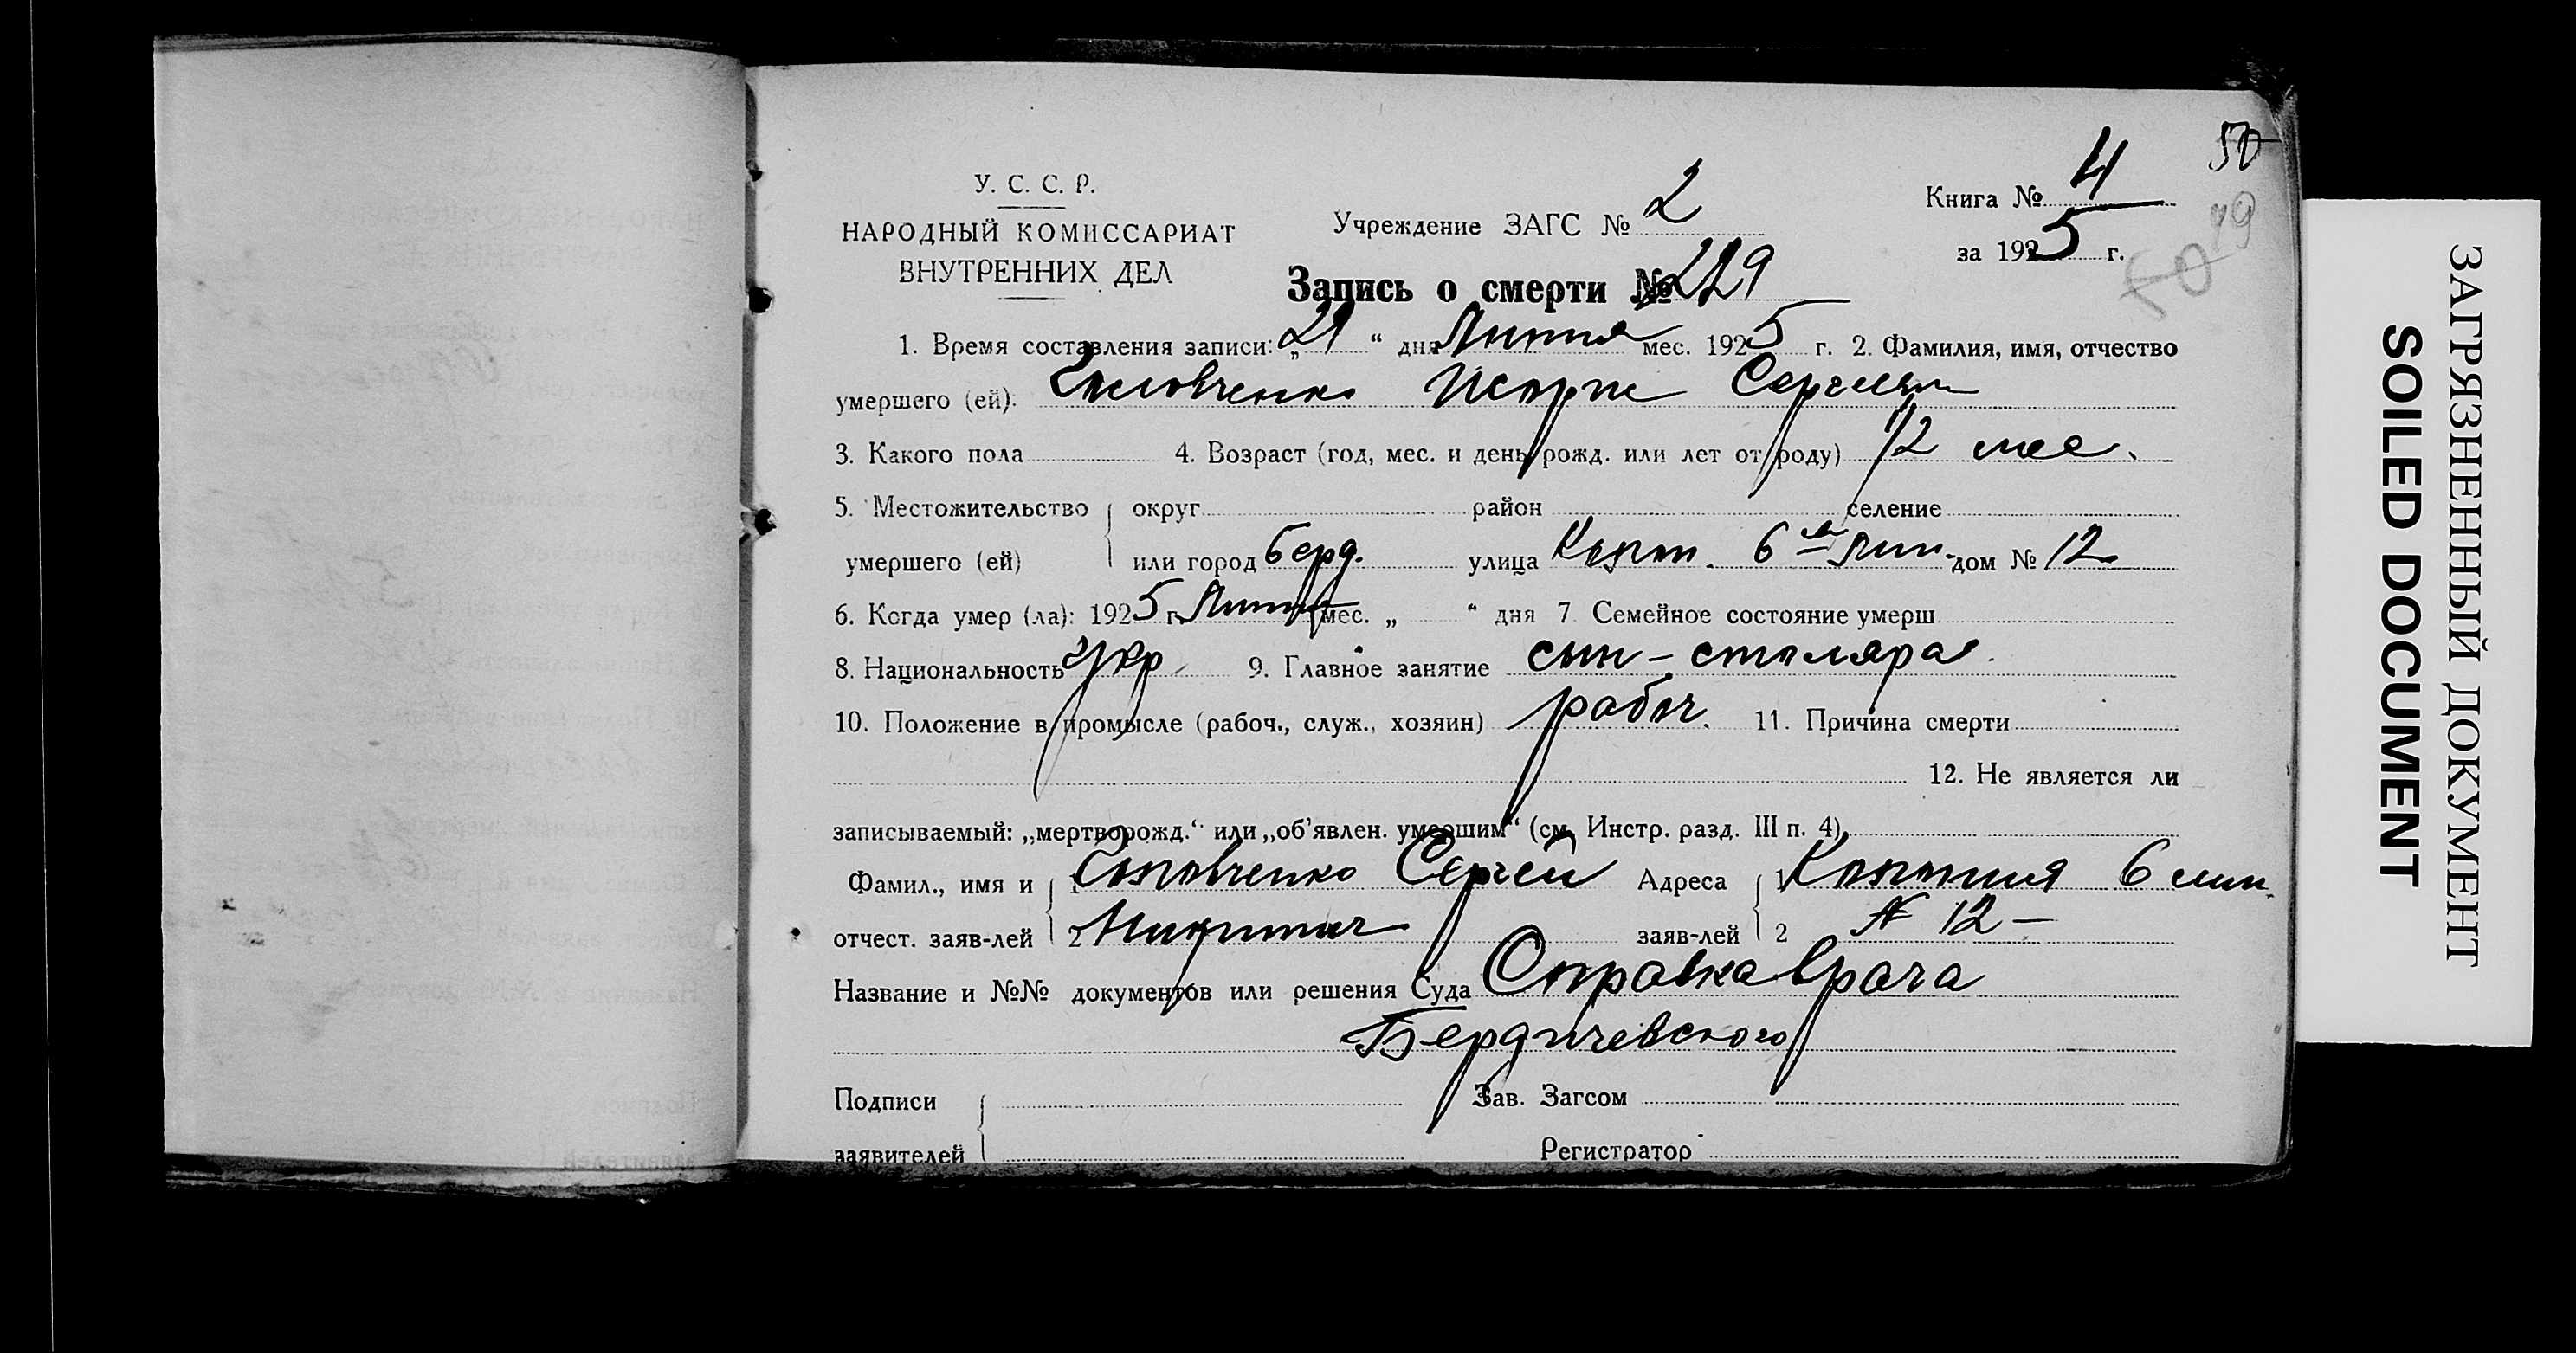 У. С. С. Р.
НАРОДНЫЙ КОМИССАРИАТ
ВНУТРЕННИХ ДЕЛ
Учреждение ЗАГС № 2
Книга № 4
за 1925 г.
50
Запись о смерти №
1. Время составления записи: „21“ дня мес. 1925 г. 2. Фамилия, имя, отчество
умершего (ей):
3. Какого пола 4. Возраст (год, мес. и день рожд. или лет от роду) 1/2 мес.
5. Местожительство округ район селение
умершего (ей) или город Берд. улица 6 лин. дом № 12
6. Когда умер (ла): 1925 г. мес. „ “ дня 7 Семейное состояние умерш
8. Национальность укр 9. Главное занятие сын - столяра.
10. Положение в промысле (рабоч., служ., хозяин) рабоч. 11. Причина смерти
12. Не является ли
записываемый: „мертворожд.“ или „об’явлен. умершим“ (см. Инстр. разд. III п. 4)
Фамил., имя и 1 Сергей Адреса 1 6 лин.
отчест. заяв-лей 2 заяв-лей 2 № 12 –
Название и №№ документов или решения Суда Справка врача
Бердичевского
Подписи Зав. Загсом
заявителей Регистратор
ЗАГРЯЗНЕННЫЙ ДОКУМЕНТ
SOILED DOCUMENT